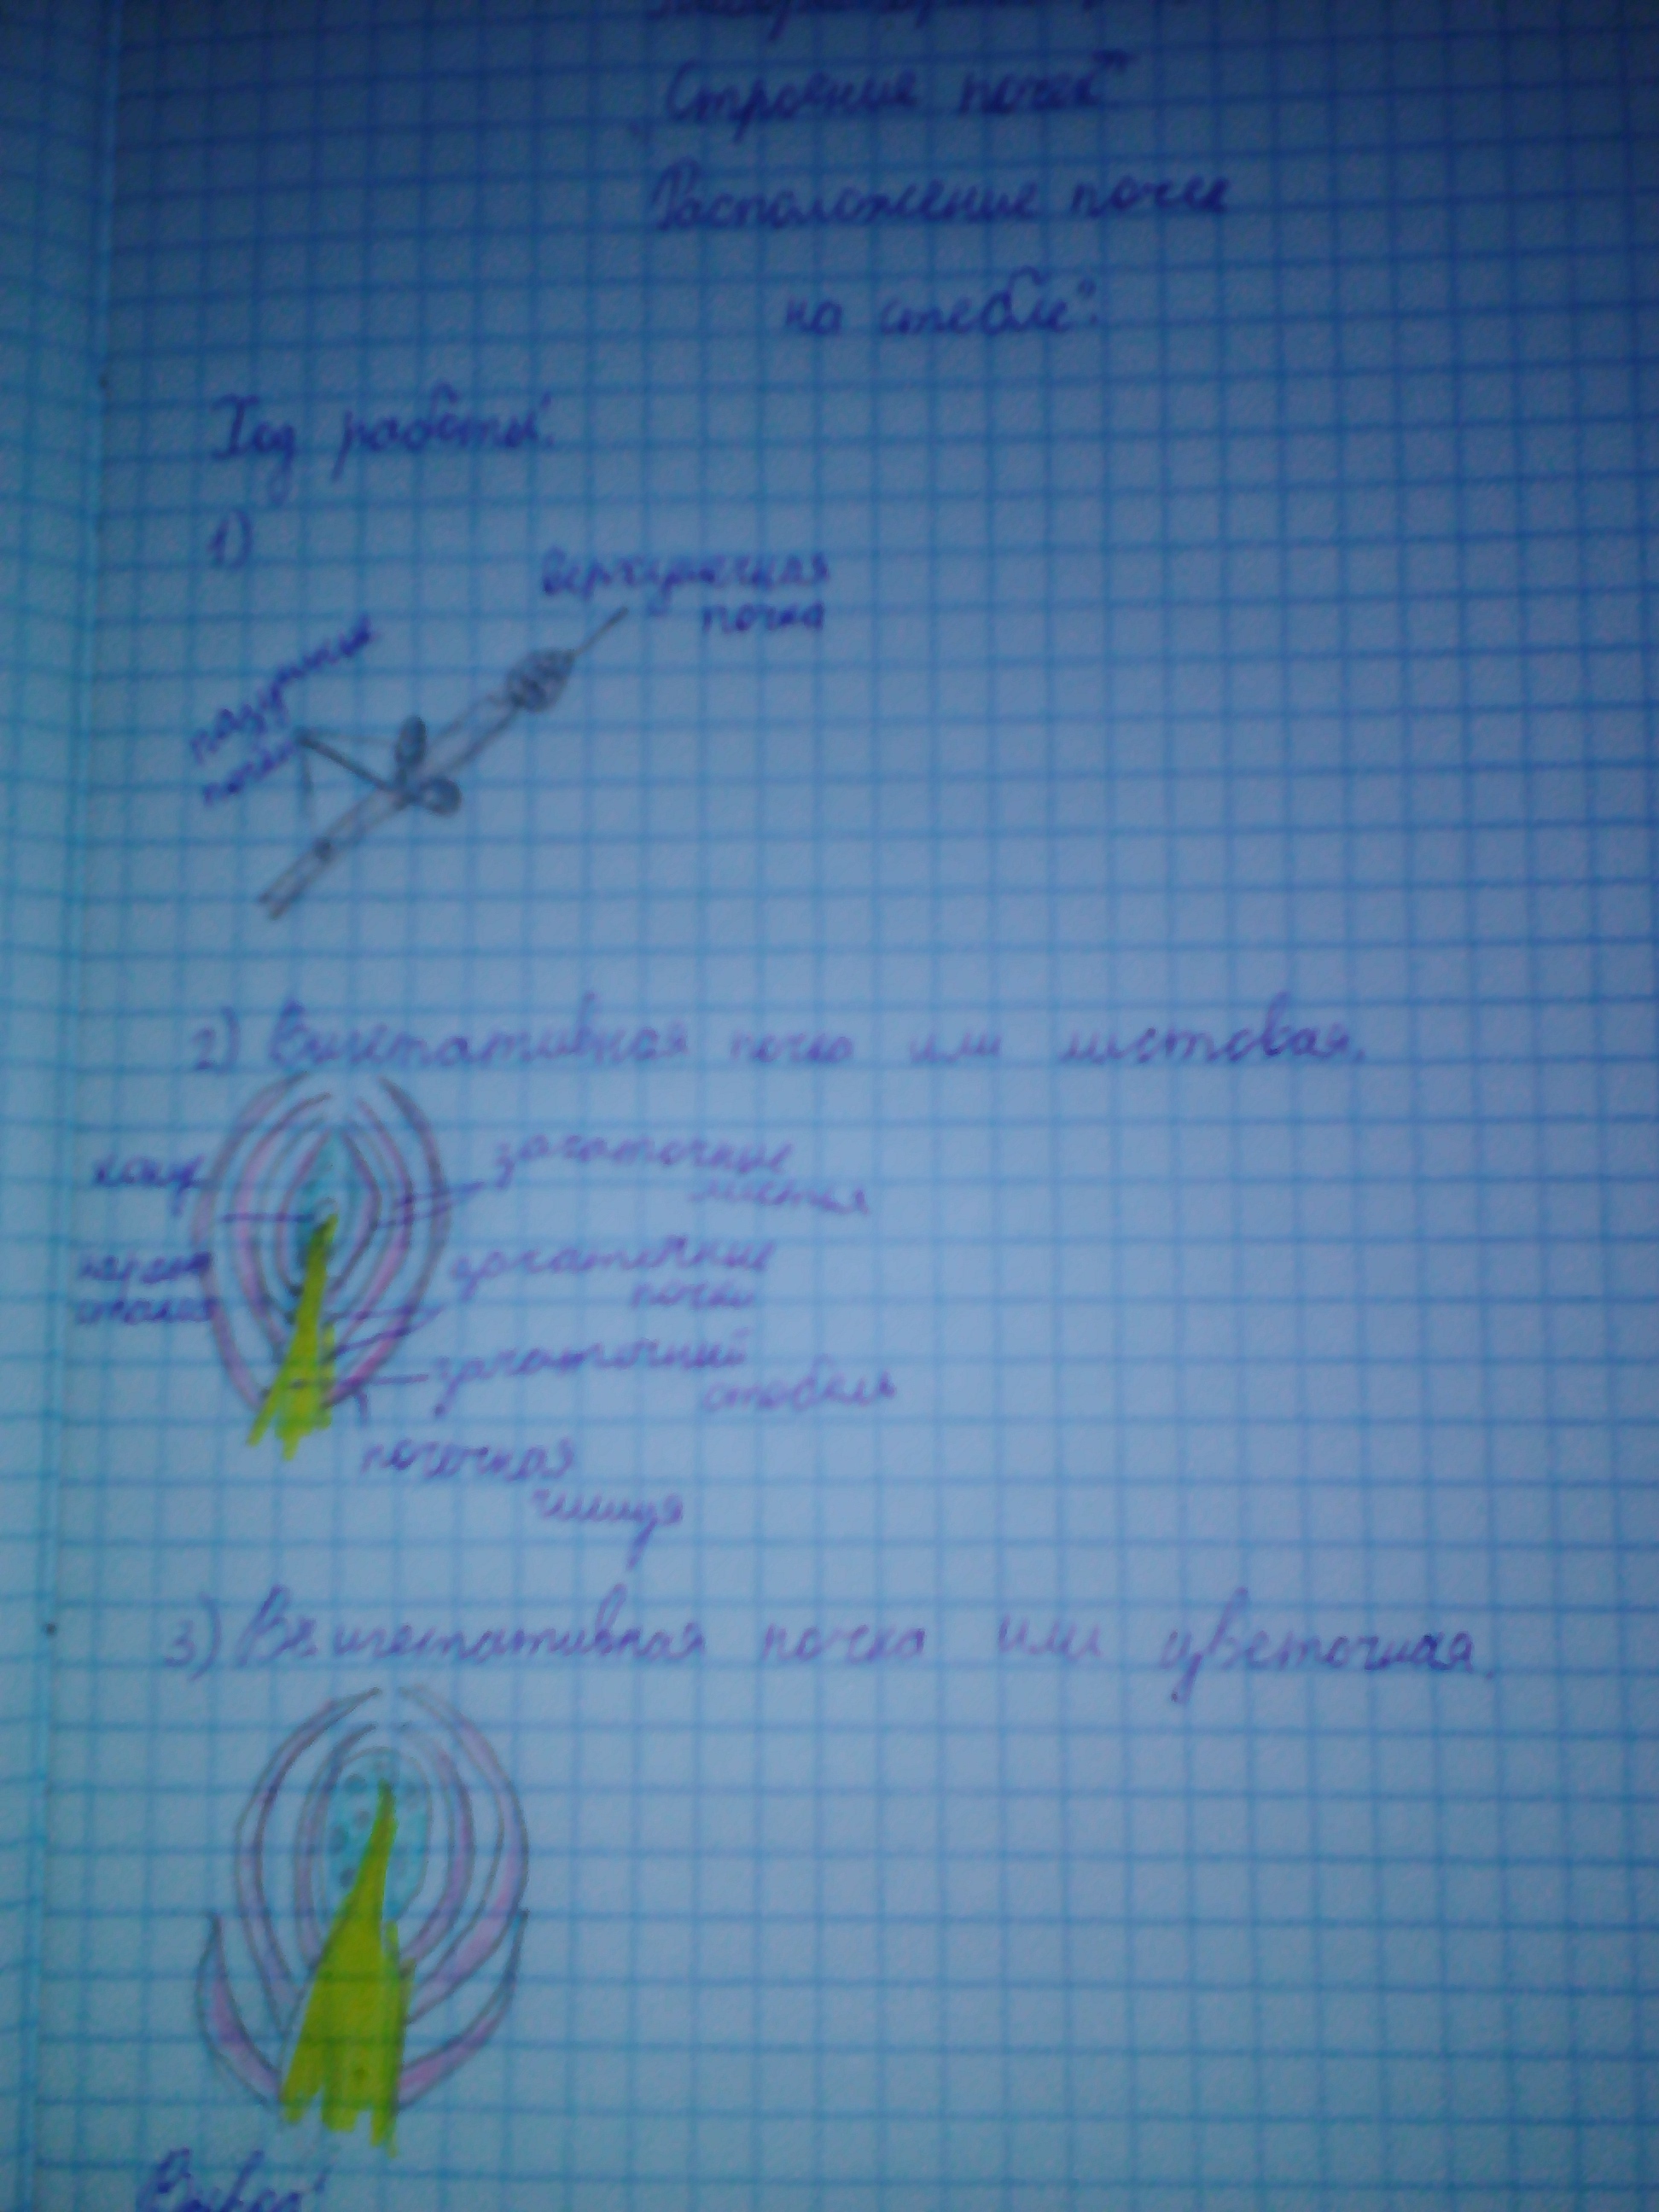 Строение почек"
Расположение почек
на стебле".
Ход работы:
1)
верхушечная
почка
пазушные
почки
2) Вигетативная почка или листовая.
конус
нарас
стания
зачаточные
листья
зачаточные
почки
зачаточный
стебель
почечная
чишуя
3) Вегигетативная почка или цветочная.
Вывод: